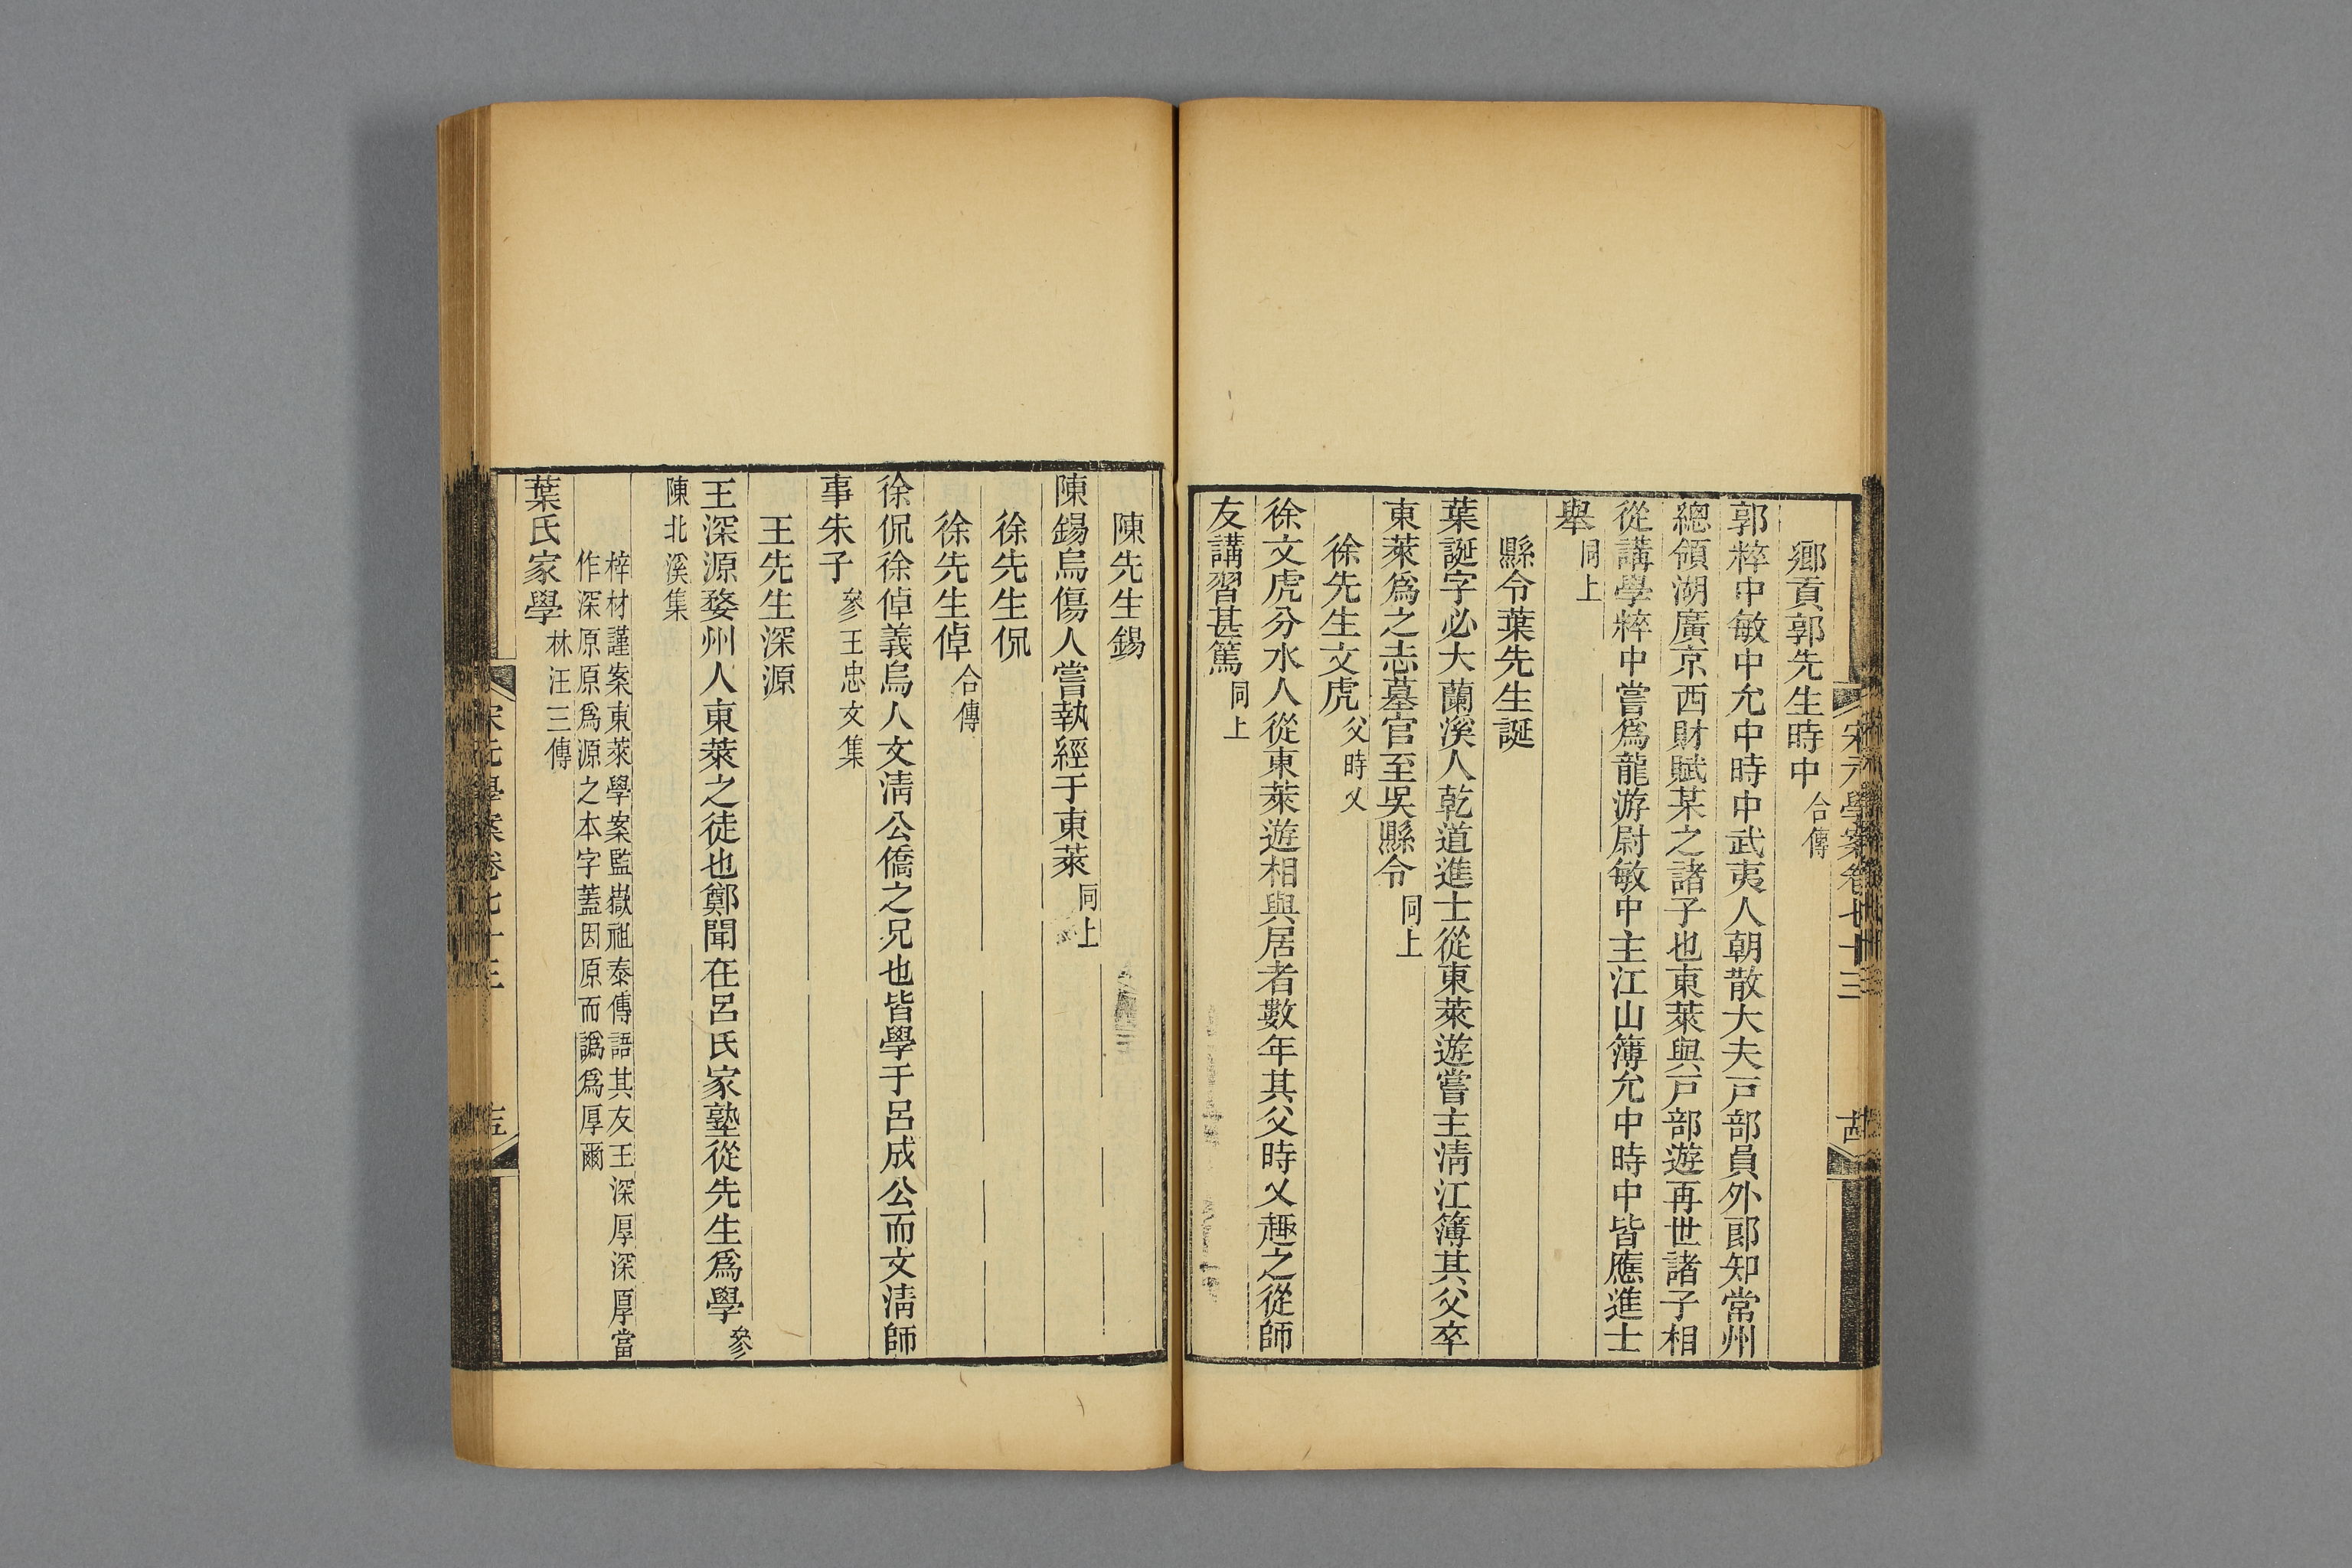 宋元學案卷七十三
鄉貢郭先生時中合傳
郭粹中敏中允中時中武夷人朝散大夫戸部員外郎知常州
總領湖廣京西財賦某之諸子也東萊與戸部遊再世諸子相
從講學粹中嘗爲龍游尉敏中主江山簿允中時中皆應進士
舉同上
縣令葉先生誕
葉誕字必大蘭溪人乾道進士從東萊遊嘗主清江簿其父卒
東萊爲之志墓官至吳縣令同上
徐先生文虎父時乂
徐文虎分水人從東萊遊相與居者數年其父時乂趣之從師
友講習甚篤同上
陳先生錫
陳錫烏傷人嘗執經于東萊同上
徐先生侃
徐先生倬合傳
徐侃徐倬義烏人文清公僑之兄也皆學于呂成公而文清師
事朱子參王忠文集
王先生深源
王深源婺州人東萊之徒也鄭聞在呂氏家塾從先生爲學參
陳北溪集
梓材謹案東萊學案監嶽祖泰傳語其友王深厚深厚當
作深原原爲源之本字蓋因原而譌爲厚爾
葉氏家學林汪三傳
宋元學案卷七十三